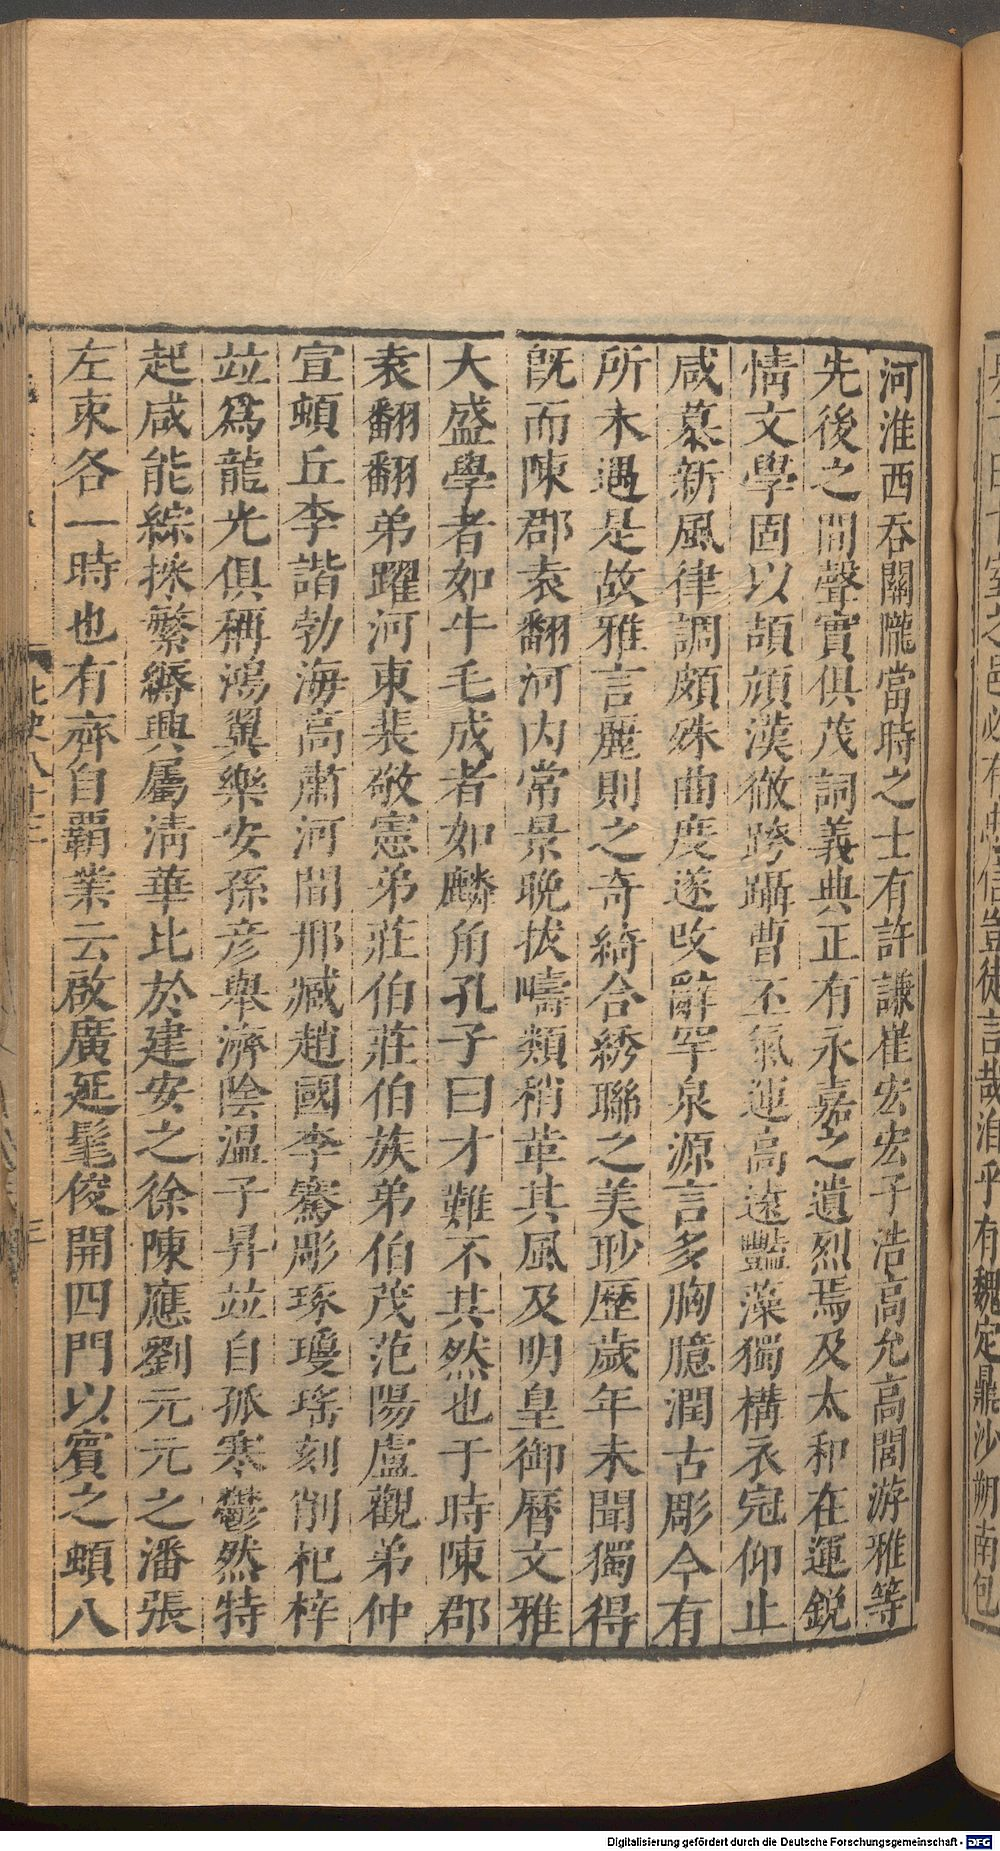 河淮西吞關隴當時之士有許謙崔宏宏子浩高允高閭游雅等
先後之間聲實俱茂詞義典正有永嘉之遺烈焉及太和在運鋭
情文學固以頡頏漢徹跨躡曹丕氣運高遠豔藻獨構衣冠仰止
咸慕新風律調頗殊曲度遂改辭罕泉源言多胸臆潤古彫今有
所未遇是故雅言麗則之奇綺合綉聯之美眇歷歲年未聞獨得
旣而陳郡袁翻河内常景晩拔疇類稍革其風及明皇御曆文雅
大盛學者如牛毛成者如麟角孔子曰才難不其然也于時陳郡
袁翻翻弟躍河東裴敬憲弟莊伯莊伯族弟伯茂范陽盧觀弟仲
宣頓丘李諧勃海高肅河間邢臧趙國李騫彫琢瓊瑤刻削杞梓
竝爲龍光俱稱鴻翼樂安孫彦舉濟陰溫子昇竝自孤寒鬱然特
起咸能綜採繁縟興屬清華比於建安之徐陳應劉元元之潘張
左束各一時也有齊自霸業云啟廣延髦俊開四門以賓之頓八
北史八十三
三
南包
魏定鼎沙朔
信豈徒言哉洎乎有
Digitalisierung gefördert durch die Deutsche Forschungsgemeinschaft - DFG